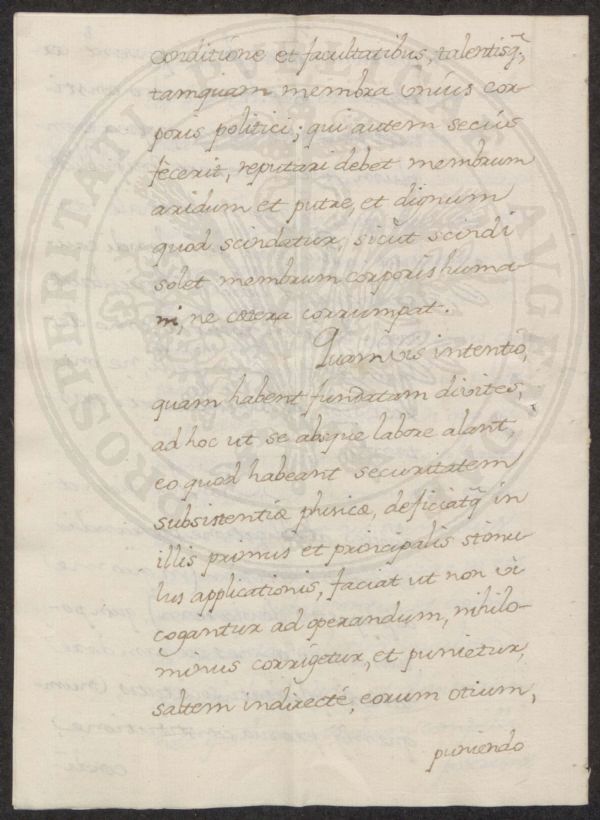 conditione et facultatibus, talentisq̃,
tamquam membra unius cor-
poris politici; qui autem secus
fecerit, reputari debet membrum
aridum et putre, et dignum
quod scindatur, sicut scindi
solet membrum corporis huma-
ni, ne cætera corrumpat.
Quamvis intentio,
quam habent fundatam divites,
ad hoc ut se absque labore alant,
eo quod habeant securitatem
subsistentiæ phisicæ, deficiatq̃ in
illis primus et principalis stimu-
lus applicationis, faciat ut non vi
cogantur ad operandum, nihilo-
minus corrigetur, et punietur,
saltem indirecté, eorum otium,
puniendo
PROSPERITATI PVBLICAE AVGENDAE